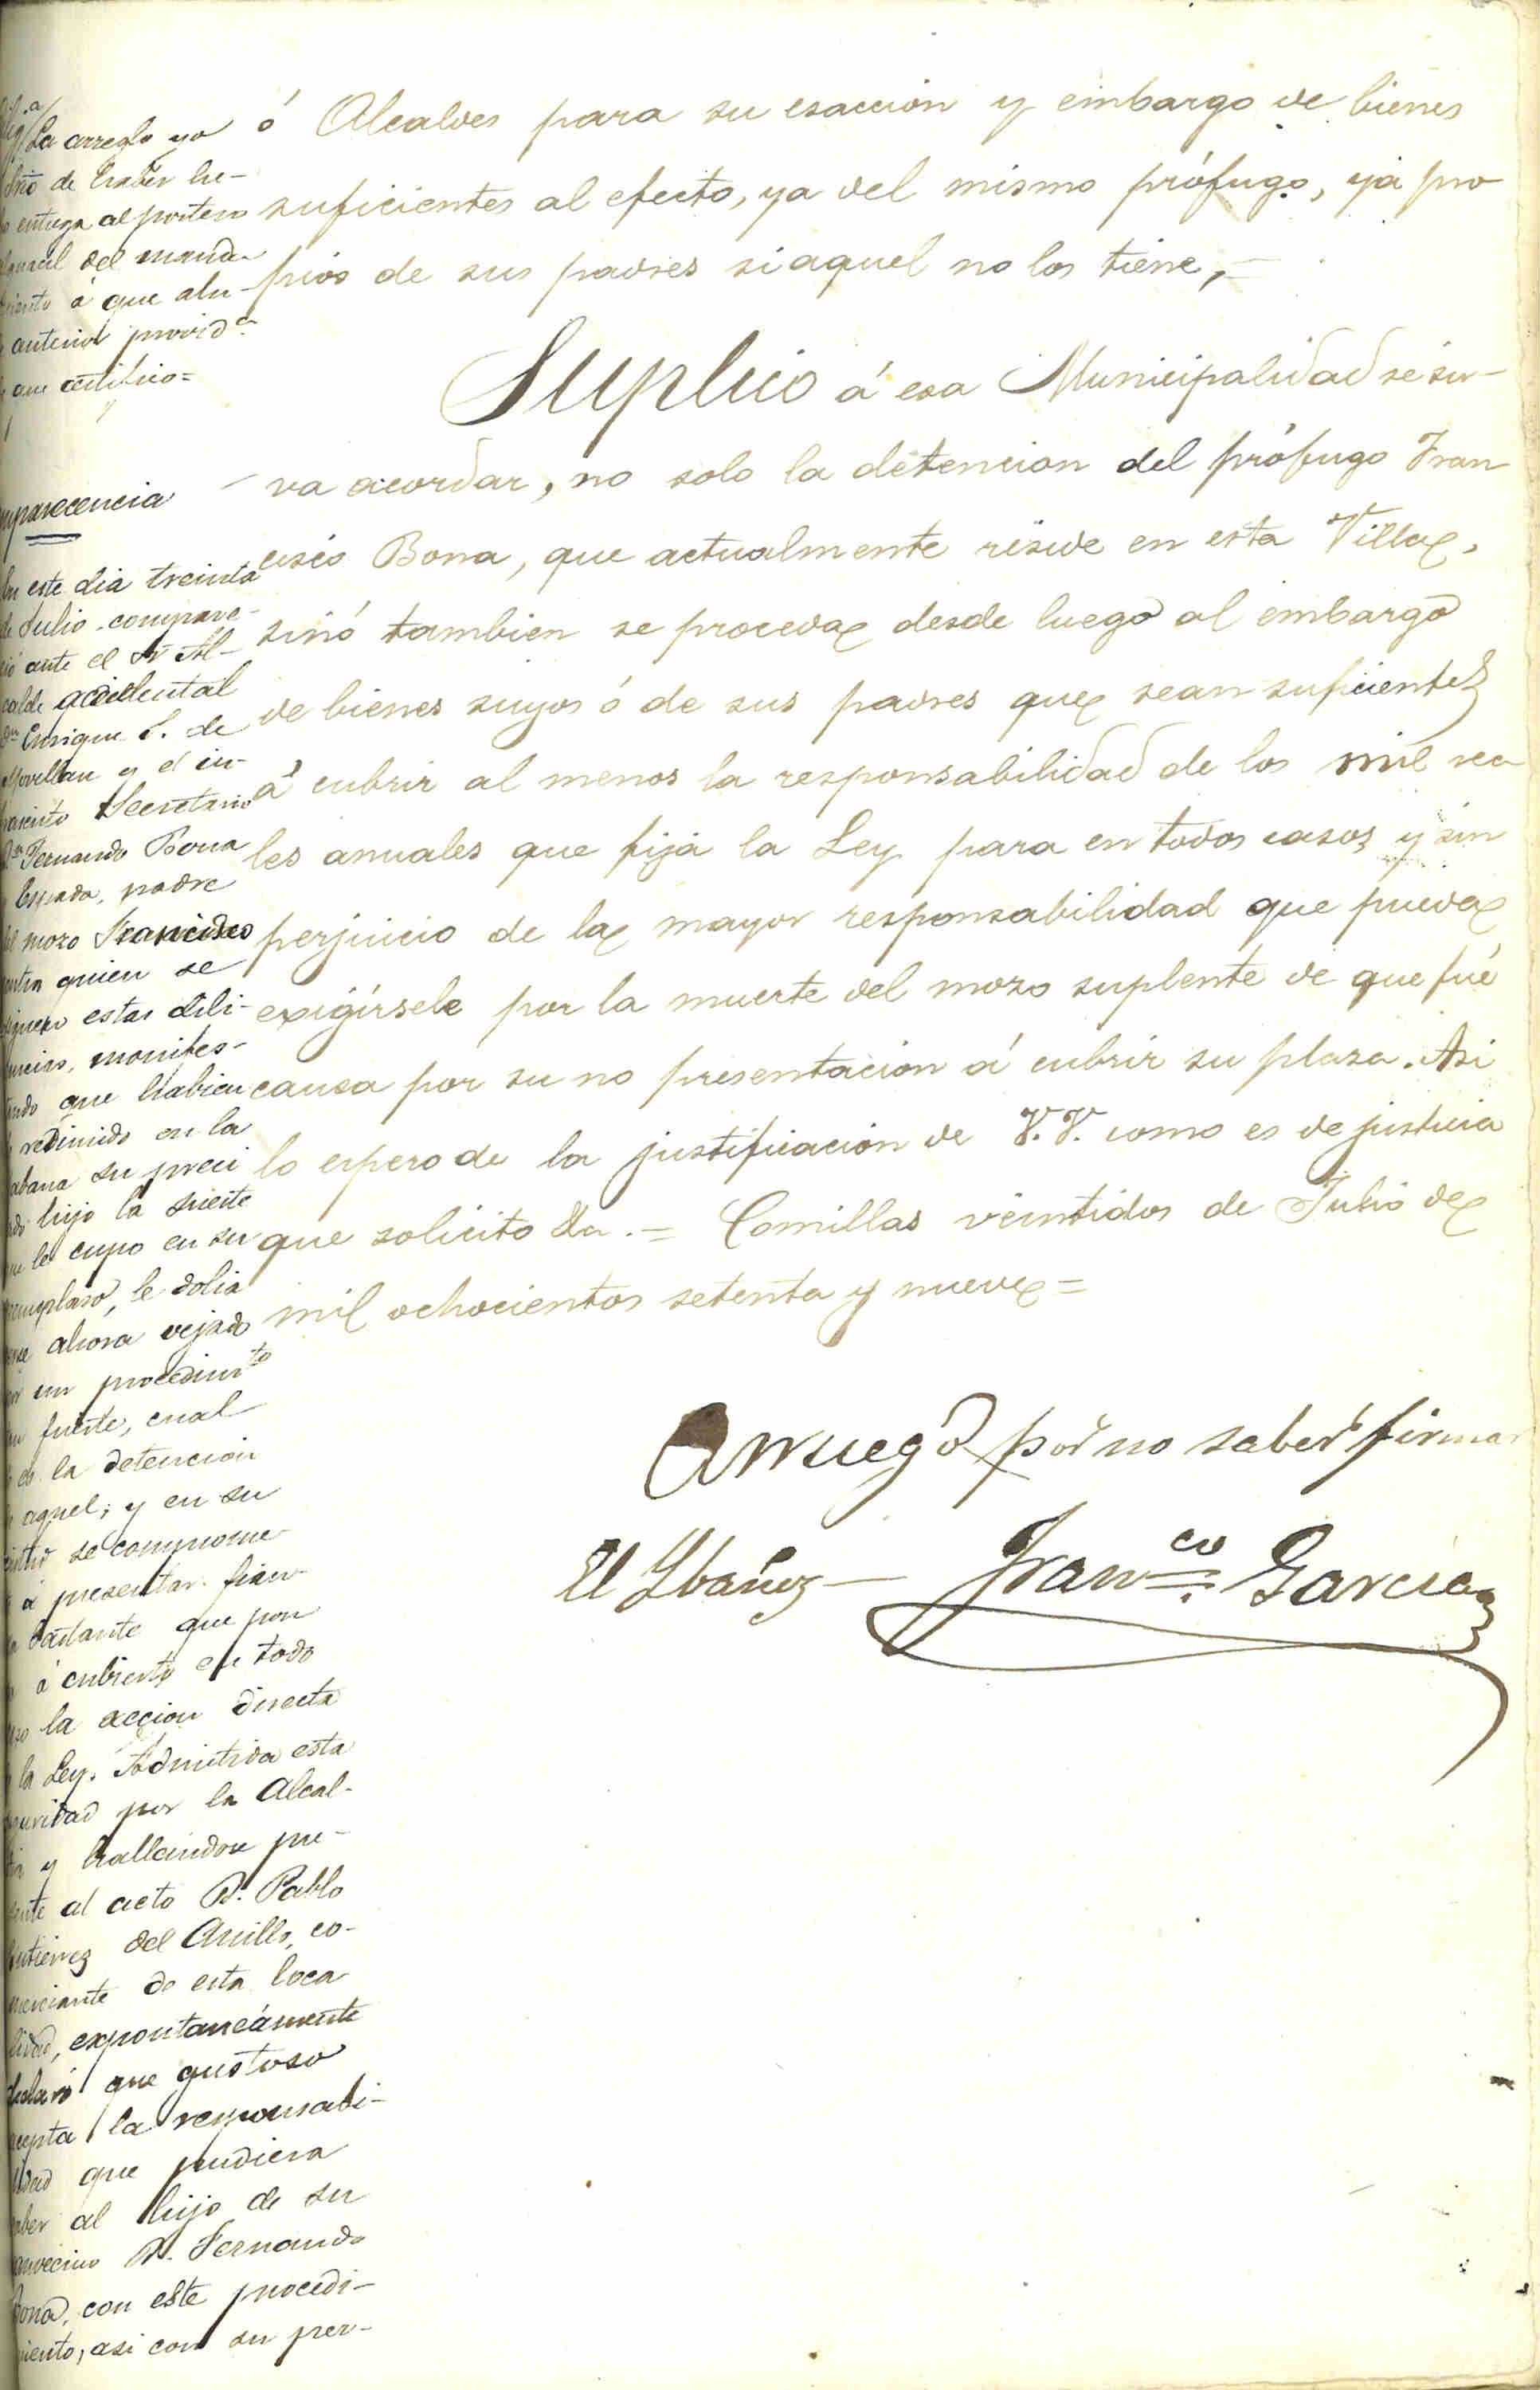 ó Alcaldes para su esaccion y embargo de bienes
suficientes al efecto, ya del mismo prófugo, ya pro
pios de sus padres si aquel no los tiene,=
Suplico á esa Municipalidad se sir-
va acordar, no solo la detencion del prófugo Fran
cisco Bona, que actualmente reside en esta Villa,
sinó tambien se proceda desde luego al embargo
de bienes suyos ó de sus padres que sean suficientes
á cubrir al menos la responsabilidad de los mil rea
les anuales que fija la Ley para en todos casos y sin
perjuicio de la mayor responsabilidad que pueda
exigírsele por la muerte del mozo suplente de que fué
causa por su no presentacion á cubrir su plaza. Asi
lo espero de la justificacion de V.V. como es de justicia
que solicito &a.= Comillas veintidos de Julio de
mil ochocientos setenta y nueve=
Arruego por no saber firmar
el Ybañez— Fran.co Garcia
La arreglo yo
de haber he-
entrega al portero
del manda
á que alu-
anterior provid.a
que certifico=
mparecencia
En este dia treinta
de Julio compare-
ció ante el Sr. Al-
calde accidental
Dn Enrique S. de
Movellan y el in-
frascrito Secretario
Dn Fernando Bona
padre
del mozo Francisco
contra quien se
siguen estas dili-
gencias, manifes-
tando que habien
redimido en la
Habana su preci
tado hijo la suerte
que le cupo en su
reemplazo, le dolia
ahora vejado
por un procedimto
tan fuerte, cual
es la detencion
de aquel; y en su
virtud se comprome
á presentar fian-
za bastante que pon
á cubierto en todo
caso la accion directa
de la Ley. Admitida esta
seguridad por la Alcal-
dia y hallandose pre-
sente al acto D. Pablo
Gutierrez del Anillo, co-
merciante de esta loca
lidad, expontaneámente
declaró que gustoso
acepta la responsabi-
lidad que pudiera
caber al hijo de su
convecino D. Fernando
Bona, con este procedi-
miento, asi con su per-